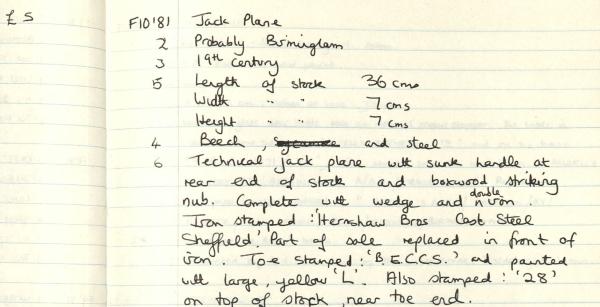 £ S
F10'81 Jack Plane
2 Probably Birmingham
3 19th Century
5 Length of stock 36 cms
Width " " 7 cms
Height " " 7 cms
4 Beech, sycamore and steel
6 Technical jack plane with sunk handle at
rear end of stock and boxwood striking
nub. Complete with wedge and double iron.
Iron stamped: 'Hernshaw Bros Cast Steel
Sheffield. Part of sole replaced in front of
iron. Toe stamped: 'B.E.C.C.S.' and painted
with large, yellow 'L'. Also stamped: '28'
on top of stock, near toe end.